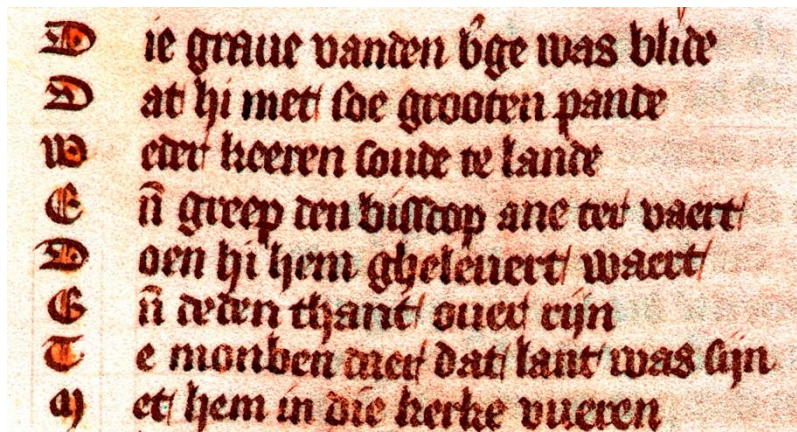 Die graue vanden b'ge was blide
Dat hi met soe grooten pande
Weder keeren soude te lande
En̄ greep den bisscop ane ter vaert
Doen hi hem gheleuert waert
En̄ deden thant ouer rijn
Te monben daer dat lant was sijn
Met hem in die kerke vueren